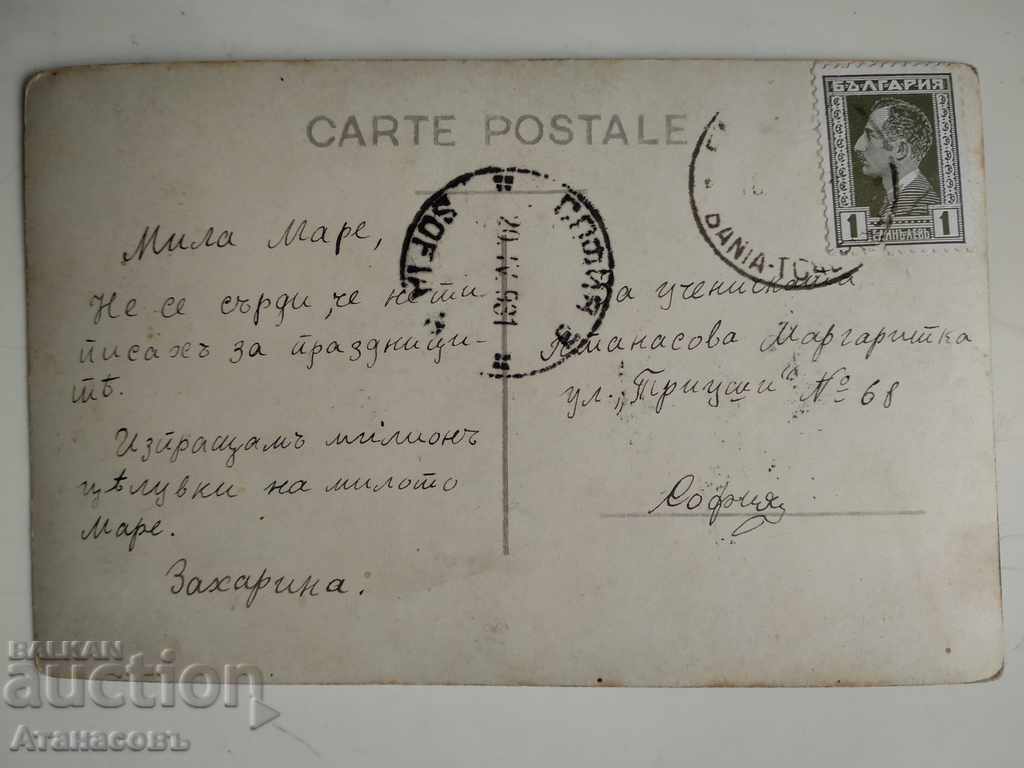 CARTE POSTALE
БЪЛГАРИЯ
1 1
SOFIA
СОФИЯ
BANIA-TC
Мила Маре,
Не се сърди, че не ти
писахъ за праздници-
тѣ.
Изпращамъ милионъ
цѣлувки на милото
Маре.
Захарина.
на ученичката
Атанасова Маргаритка
ул. „Трицуши“ № 68
София
BALKAN
auction
Атанасовъ